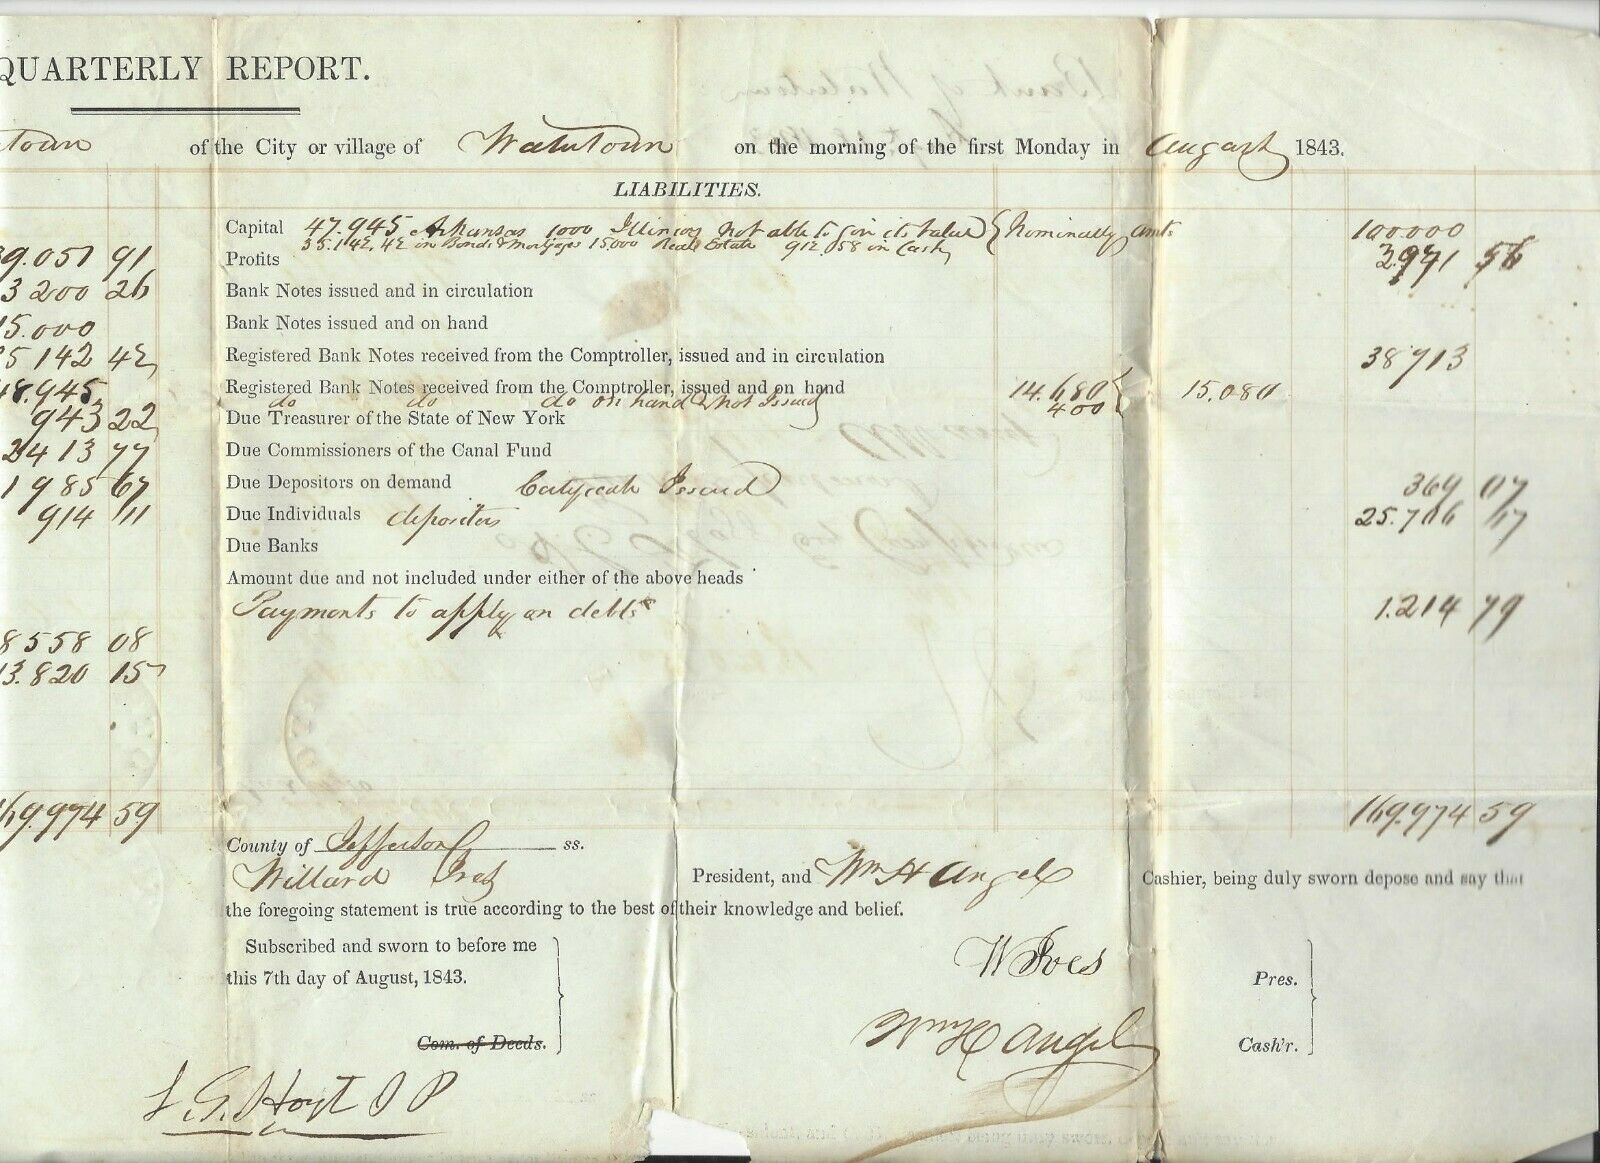 QUARTERLY REPORT.
town of the City or village of Watertown on the morning of the first Monday in August 1843.
LIABILITIES.
Capital 47.945 Arkansas 1000 Illinois not able to give its Value Nominally amts 100.000
35.142.42 in Bonds & Mortgages 15000 Real Estate 912.58 in Cash
9.051 91 Profits 3971 56
3 200 26 Bank Notes issued and in circulation
15.000 Bank Notes issued and on hand
5 142 42 Registered Bank Notes received from the Comptroller, issued and in circulation 38913
48.945 Registered Bank Notes received from the Comptroller, issued and on hand 14.680 15.080
do do do on hand & Not Issued 400
943 22 Due Treasurer of the State of New York
2413 77 Due Commissioners of the Canal Fund
1985 67 Due Depositors on demand Issued 369 07
914 11 Due Individuals depositers 25.706 17
Due Banks
Amount due and not included under either of the above heads
Payments to apply on debts 1.214 79
8558 08
13.820 15
169.974 59 169.974 59
County of Jefferson ss.
Willard Ives President, and Wm H Angel Cashier, being duly sworn depose and say that
the foregoing statement is true according to the best of their knowledge and belief.
Subscribed and sworn to before me
this 7th day of August, 1843.
W Ives Pres.
Com. of Deeds.
Wm H Angel Cash'r.
Hoyt J P